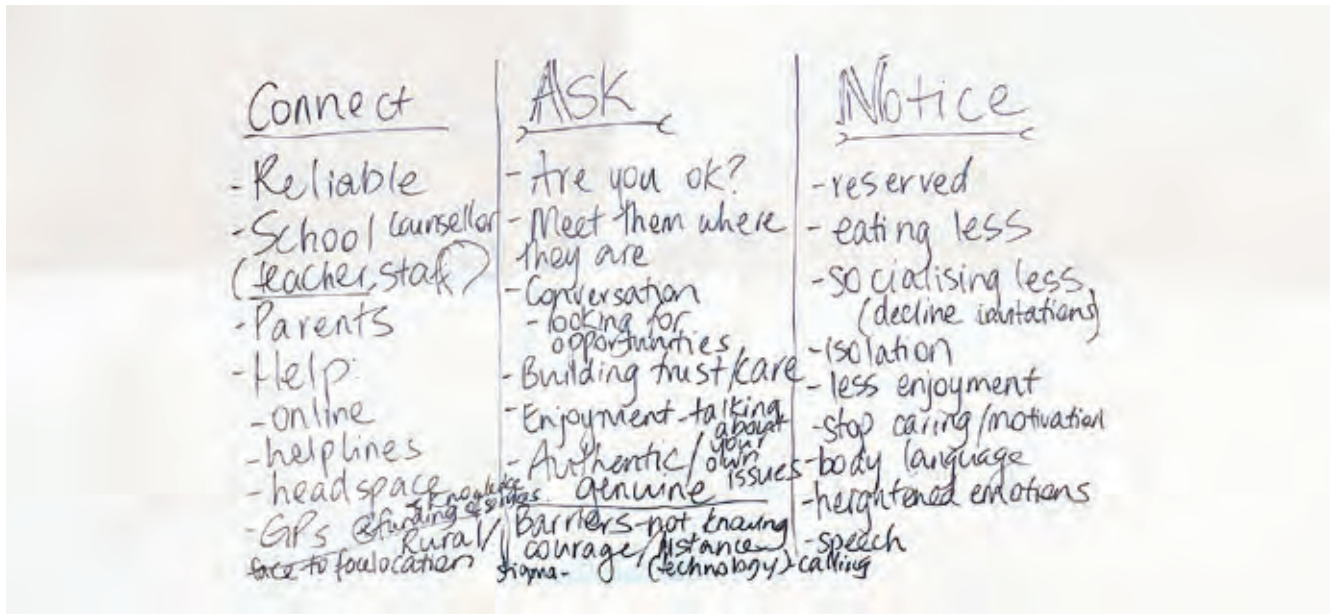 Connect
- Reliable
- School Counsellor
(teacher, staff)
- Parents
- Help:
- online
- helplines
- headspace
- GPs funding
Rural/
location
Ask
- Are you ok?
- Meet them where
they are
- Conversation
- looking for
opportunities
- Building trust/care
- Enjoyment - talking
about
your
- Authentic/ own
genuine issues
Barriers - not knowing
courage/distance
stigma - (technology) - calling
Notice
- reserved
- eating less
- socialising less
(decline invitations)
- isolation
- less enjoyment
- stop caring/motivation
- body language
- heightened emotions
- speech